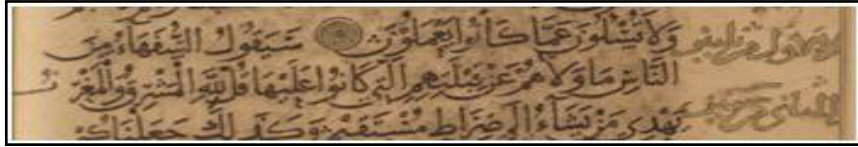 وَلَا تُسْئَلُونَ عَمَّا كَانُوا يَعْمَلُونَ سَيَقُولُ السُّفَهَاءُ مِنَ
النَّاسِ مَا وَلَّاهُمْ عَنْ قِبْلَتِهِمِ الَّتِي كَانُوا عَلَيْهَا قُلْ لِلَّهِ الْمَشْرِقُ وَالْمَغْرِ
يَهْدِي مَنْ يَشَاءُ إِلَى صِرَاطٍ مُسْتَقِيمٍ وَكَذَلِكَ جَعَلْنَاكُمْ